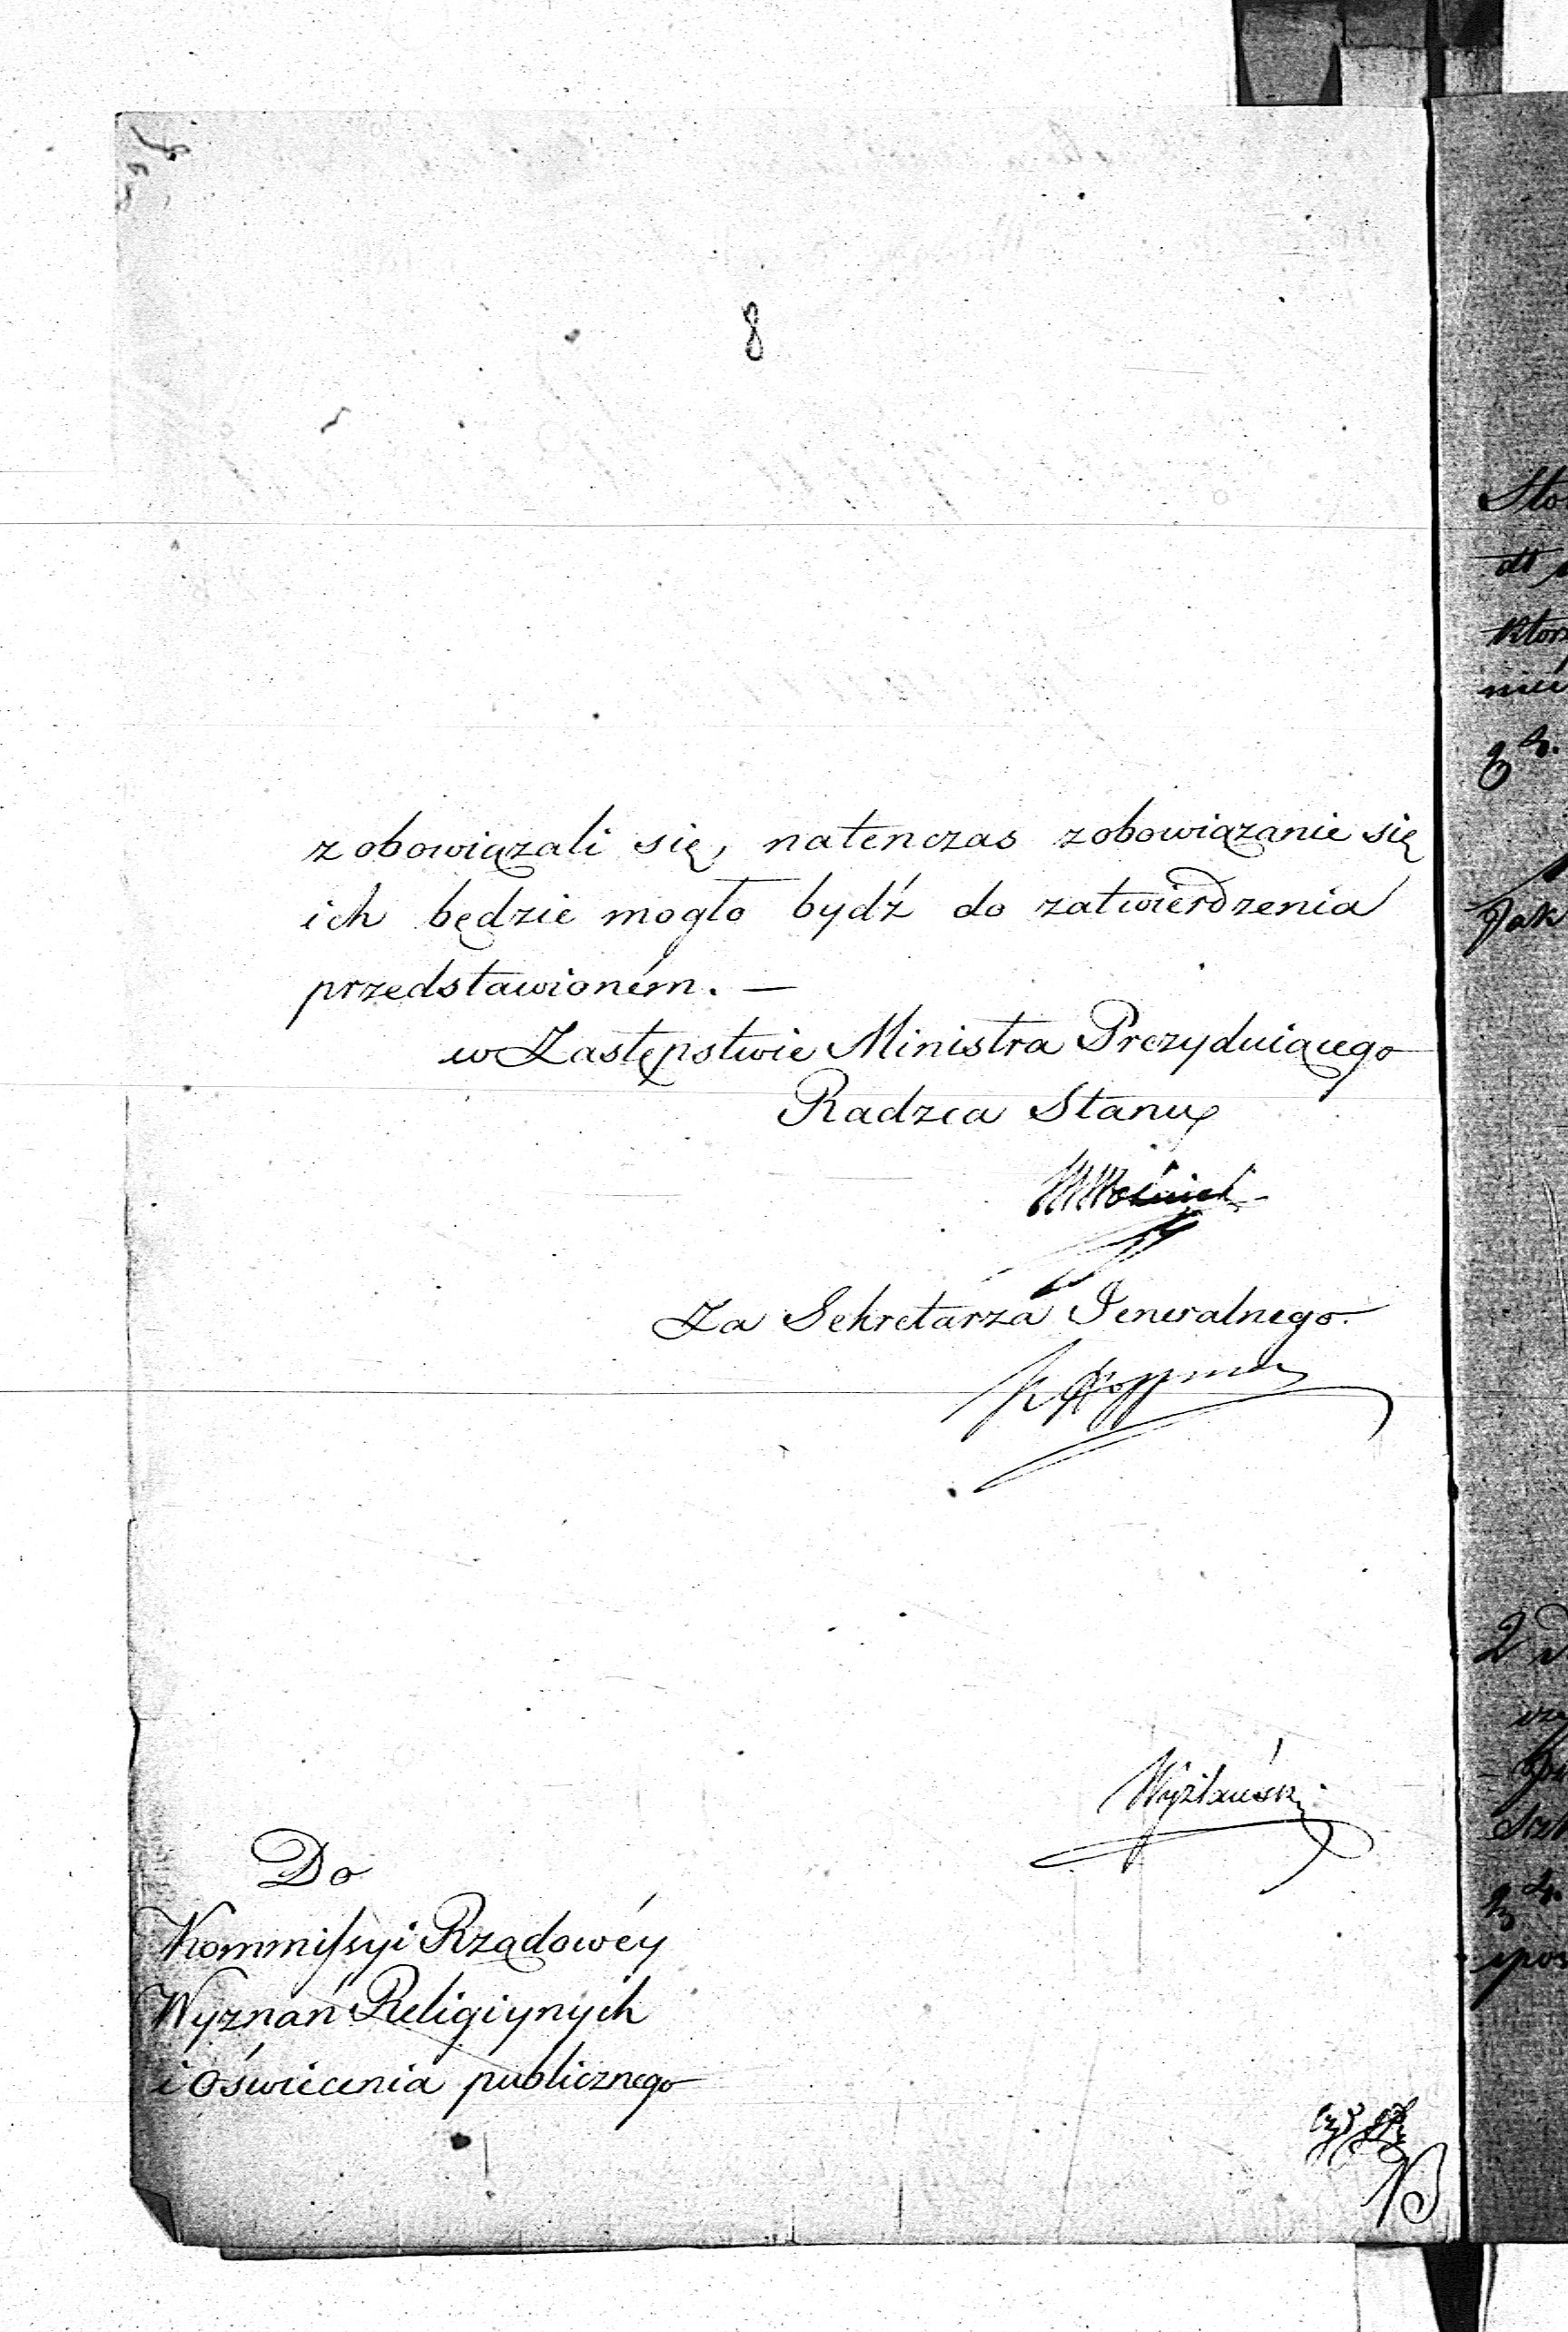 8
zobowiązali się, natenczas zobowiązanie się
ich będzie mogło bydź do zatwierdzenia
przedstawioném. —
w Zastępstwie Ministra Prezyduiącego
Radzca Stanu
Za Sekretarza Jeneralnego.
Wyżłański
Do
Kommissyi Rządowéy
Wyznań Religiynych
i Oświecenia publicznego
Sto
do
nie
Jak